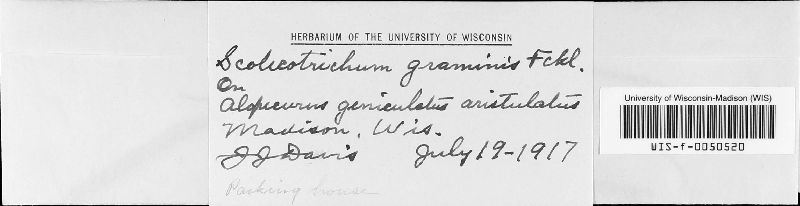 HERBARIUM OF THE UNIVERSITY OF WISCONSIN
Scolecotrichum graminis Fckl.
On
Alopecurus geniculatus aristulatus
Madison, Wis.
J J Davis July 19-1917
Packing house
University of Wisconsin-Madison (WIS)
WIS-f-0050520